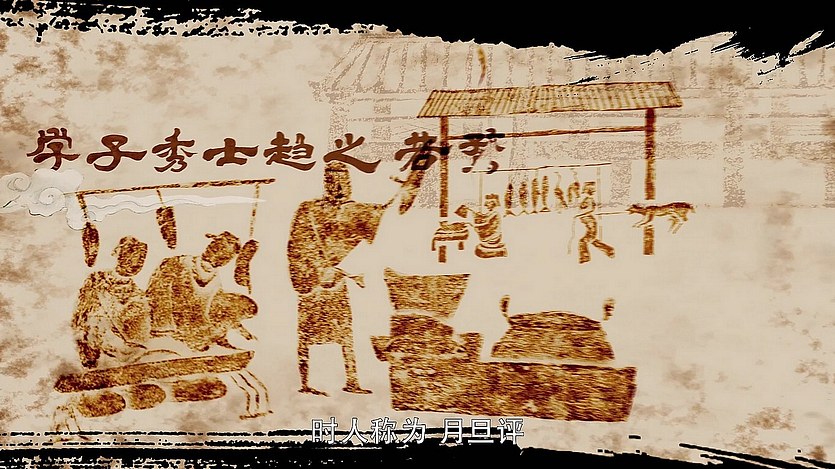 学子秀士趋之若鹜
时人称为 月旦评